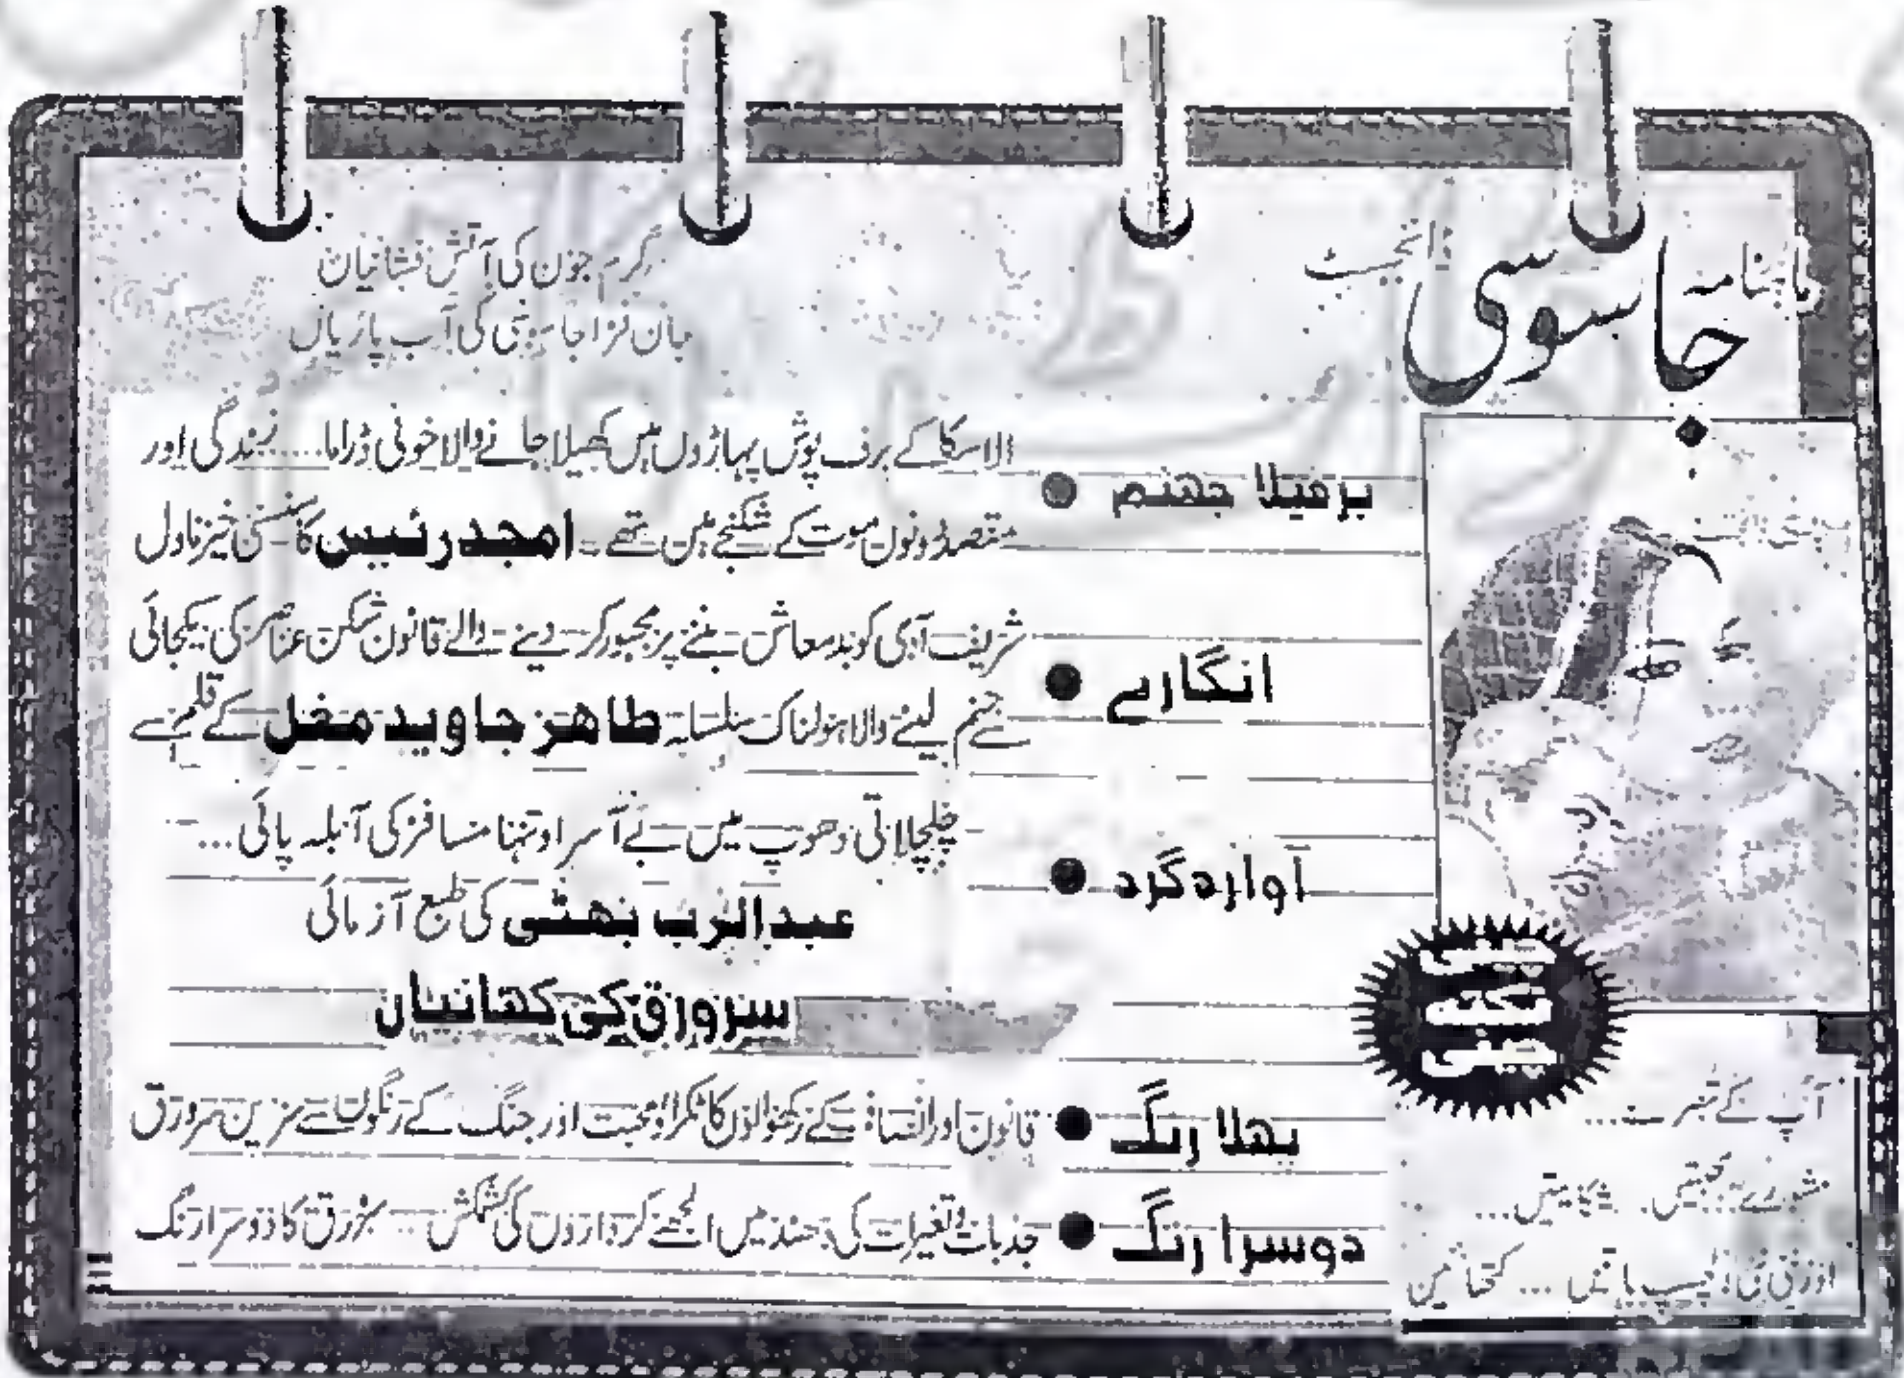 ماہنامہ جاسوسی ڈائجسٹ
گرم جون کی آتش فشانیاں
جان فزا جاسوسی کی آب یاریاں
برفیلا جهنم
الاسکا کے برف پوش پہاڑوں میں کھیلا جانے والا خونی ڈراما.... زندگی اور
مقصد دونوں موت کے شکنجے میں تھے۔ امجد رئیس کا سنسنی خیز ناول
انگارے
شریف آدمی کو بدمعاش بننے پر مجبور کر دینے والے قانون شکن عناصر کی یکجائی
جنم لینے والا ہولناک سلسلہ طاهر جاوید مغل کے قلم سے
آواره گرد
چلچلاتی دھوپ میں بے آسرا و تنہا مسافر کی آبلہ پائی...
عبدالرب بھٹی کی طبع آزمائی
سرورق کی کہانیاں
پہلا رنگ
قانون اور انصاف کے رکھوالوں کا ٹکراؤ محبت اور جنگ کے رنگوں سے مزین سرورق
دوسرا رنگ
جذبات و تغیرات کی دھند میں الجھے کرداروں کی کشمکش... سرورق کا دوسرا رنگ
چینی
نکتہ
چینی
آپ کے تبصرے...
مشورے محبتیں.. شکایتیں...
اور نئی نئی دلچسپ باتیں ... کتھائیں